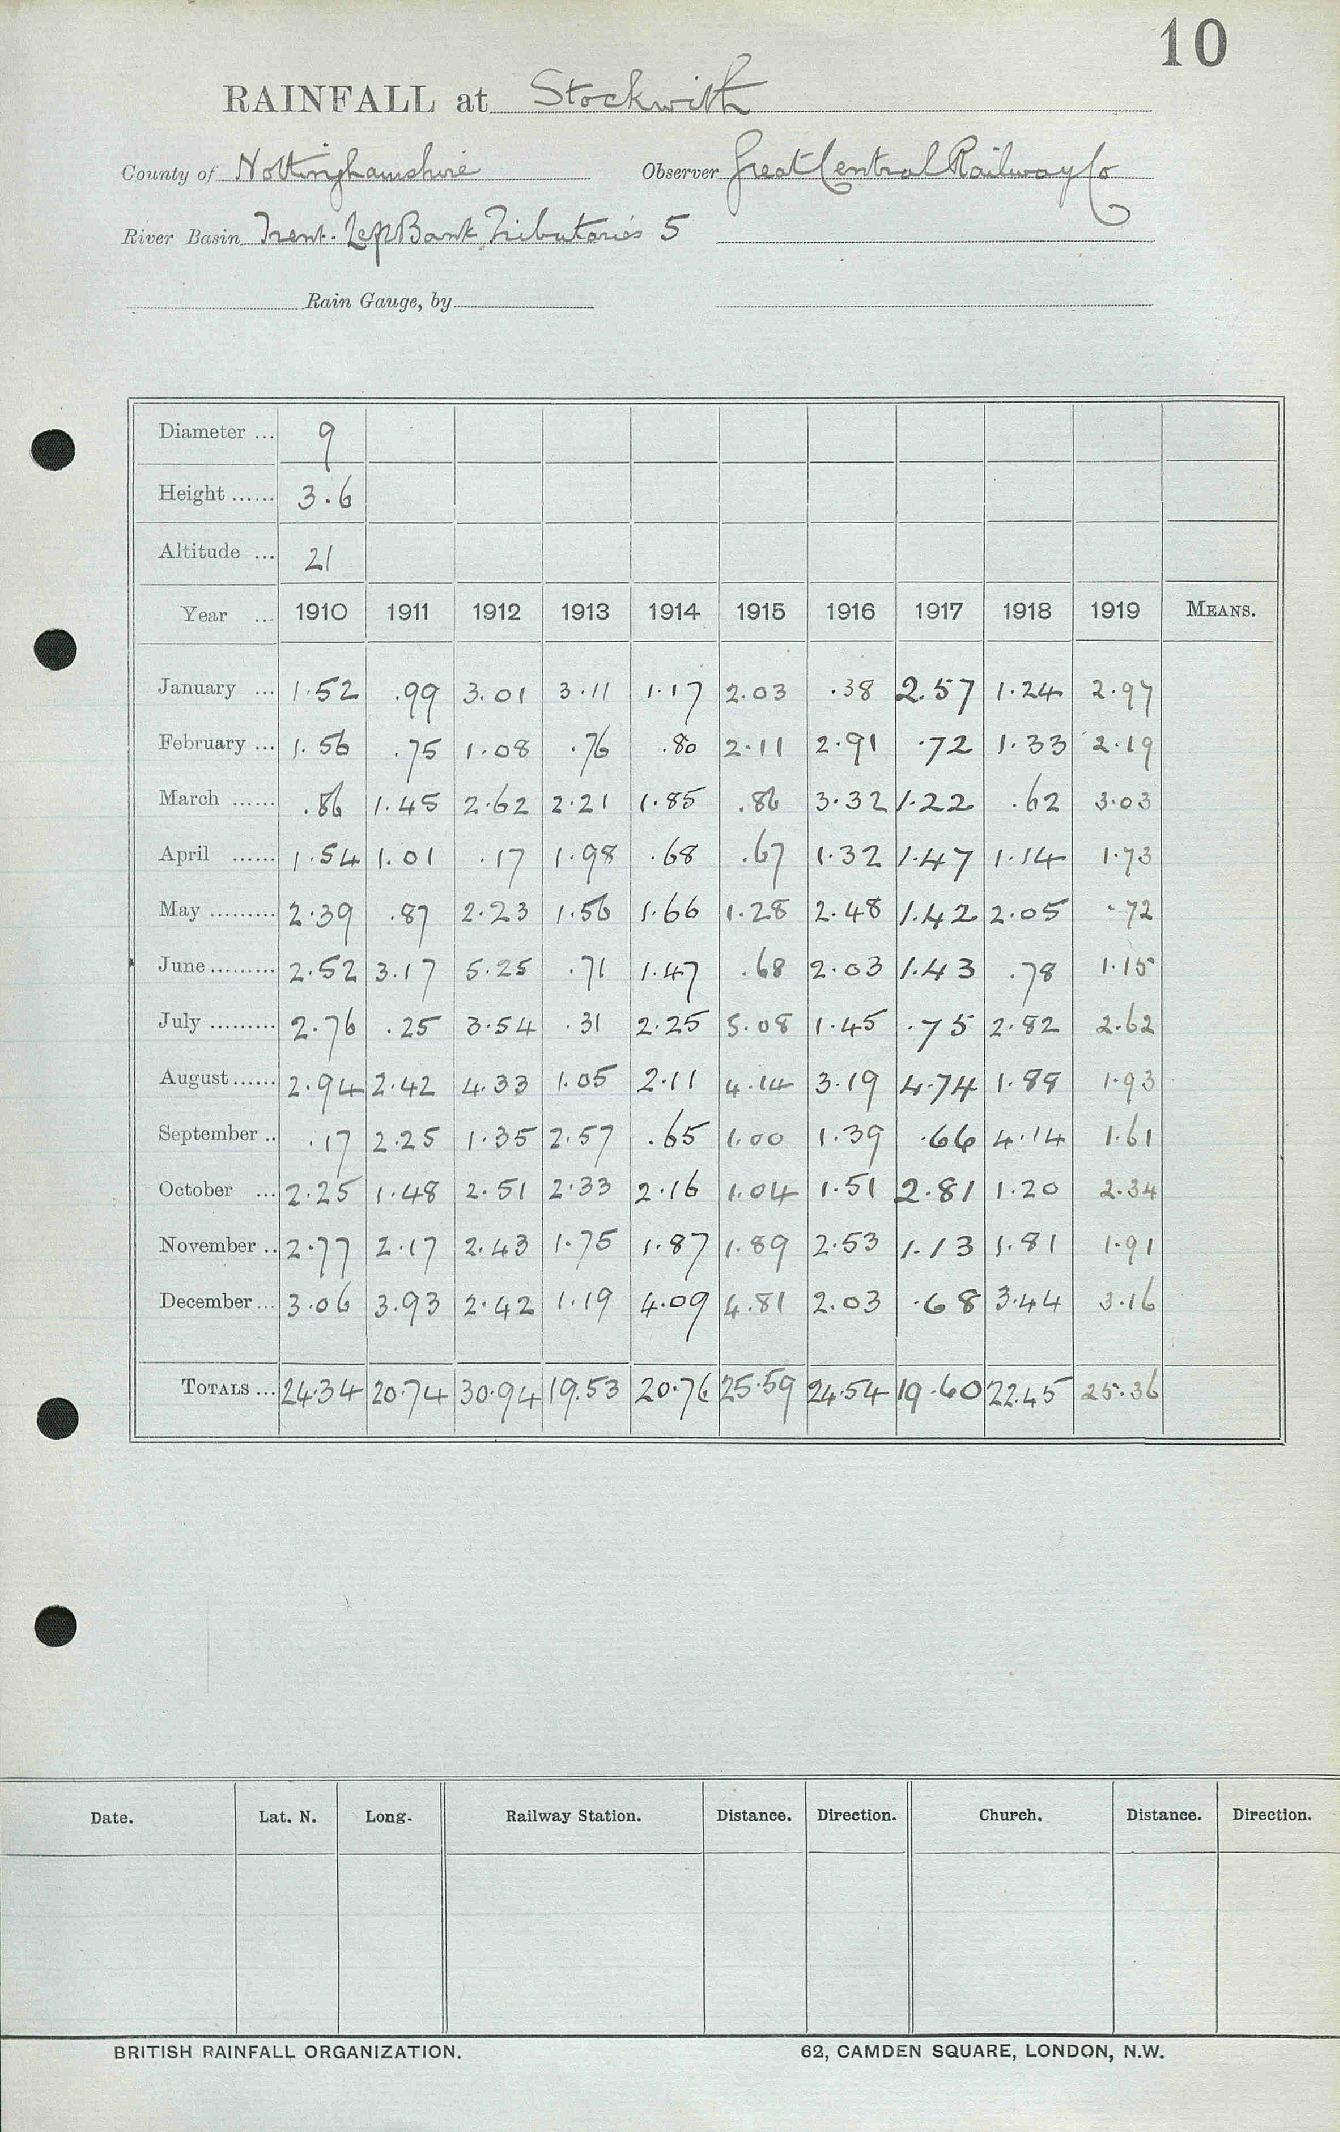 10
RAINFALL at Stockwith
County of Nottinghamshire Observer Great Central Railway Co
River Basin Trent. Left Bank Tributaries 5
Rain Gauge, by
Diameter ... 9
Height ...... 3.6
Altitude ... 21
Year ... 1910 1911 1912 1913 1914 1915 1916 1917 1918 1919 MEANS.
January ... 1.52 .99 3.01 3.11 1.17 2.03 .38 2.57 1.24 2.97
February ... 1.56 .75 1.08 .76 .80 2.11 2.91 .72 1.33 2.19
March ...... .86 1.45 2.62 2.21 1.85 .86 3.32 1.22 .62 3.03
April ...... 1.54 1.01 .17 1.98 .68 .67 1.32 1.47 1.14 1.73
May ......... 2.39 .87 2.23 1.56 1.66 1.28 2.48 1.42 2.05 .72
June ......... 2.52 3.17 5.25 .71 1.47 .68 2.03 1.43 .78 1.15
July ......... 2.76 .25 3.54 .31 2.25 5.08 1.45 .75 2.82 2.62
August ...... 2.94 2.42 4.33 1.05 2.11 4.14 3.19 4.74 1.88 1.93
September .. .17 2.25 1.35 2.57 .65 1.00 1.39 .66 4.14 1.61
October ... 2.25 1.48 2.51 2.33 2.16 1.04 1.51 2.81 1.20 2.34
November .. 2.77 2.17 2.43 1.75 1.87 1.89 2.53 1.13 1.81 1.91
December ... 3.06 3.93 2.42 1.19 4.09 4.81 2.03 .68 3.44 3.16
TOTALS ... 24.34 20.74 30.94 19.53 20.76 25.59 24.54 19.60 22.45 25.36
Date. Lat. N. Long. Railway Station. Distance. Direction. Church. Distance. Direction.
BRITISH RAINFALL ORGANIZATION. 62, CAMDEN SQUARE, LONDON, N.W.